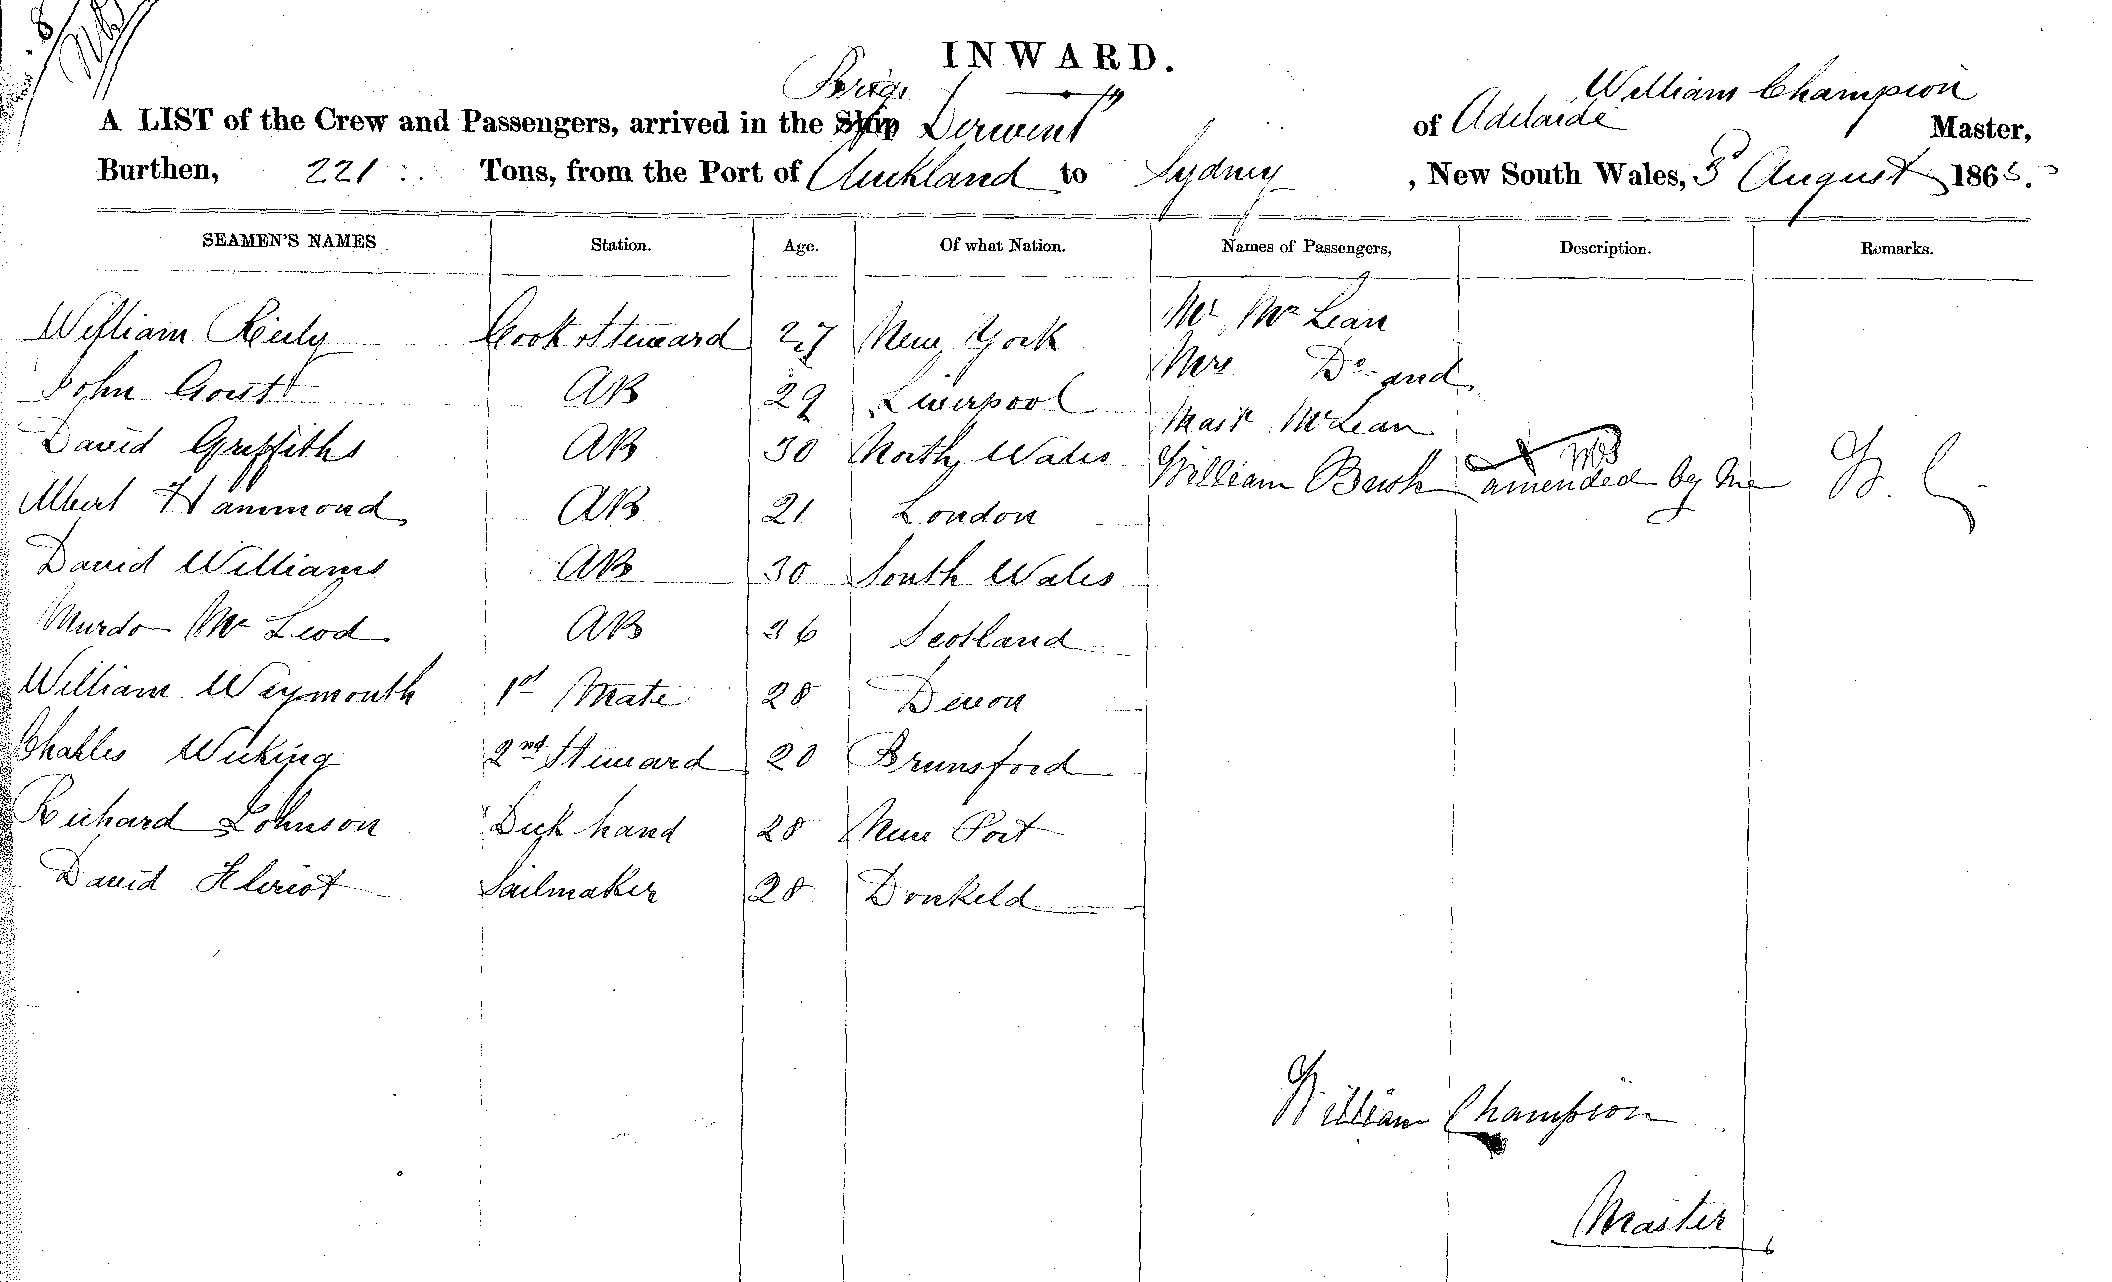 INWARD.
Brig
William Champion
A LIST of the Crew and Passengers, arrived in the Ship "Derwent" of Adelaide Master,
Burthen, 221 Tons, from the Port of Auckland to Sydney, New South Wales, 3d August 1865.
SEAMEN'S NAMES Station. Age. Of what Nation. Names of Passengers, Description. Remarks.
William Reily Cook & Steward 27 New York Mr McLean
John Goust AB 29 Liverpool Mrs Do and
David Griffiths AB 30 North Wales Mastr McLean
Albert Hammond AB 21 London William Bush amended by me W. C.
David Williams AB 30 South Wales
Murdo McLeod AB 36 Scotland
William Weymouth 1st Mate 28 Devon
Charles Wicking 2nd Steward 20 Brunsford
Richard Johnson Deck hand 28 New Port
David Heriot Sailmaker 28 Donkeld
William Champion
Master